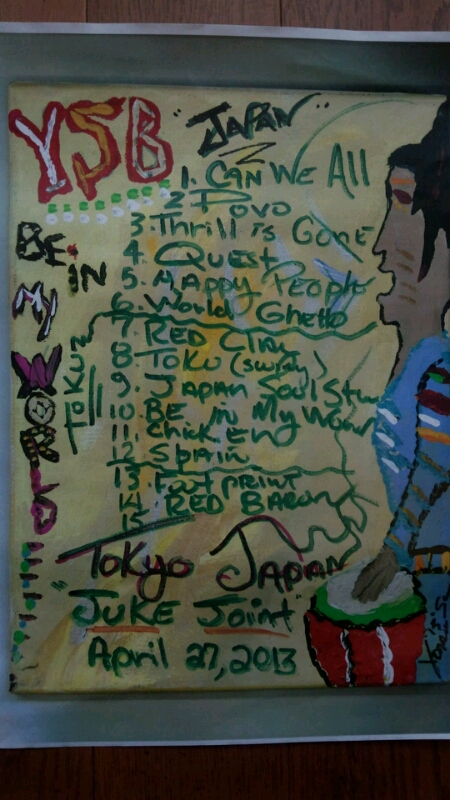 YSB
"JAPAN"
1. CAN WE All
2 Povo
3. Thrill is GONE
4. QUEST
5. HAPPY People
6. World Ghetto
7. RED Clay
8. TOKU (sway)
9. JAPAN Soul
10. BE IN My World
11. ChickEN
12 Spain
13. Foot print
14. RED BARON
15
BE IN My WORLD
TOKUZ
Tokyo JAPAN
"JUKE Joint"
April 27, 2013